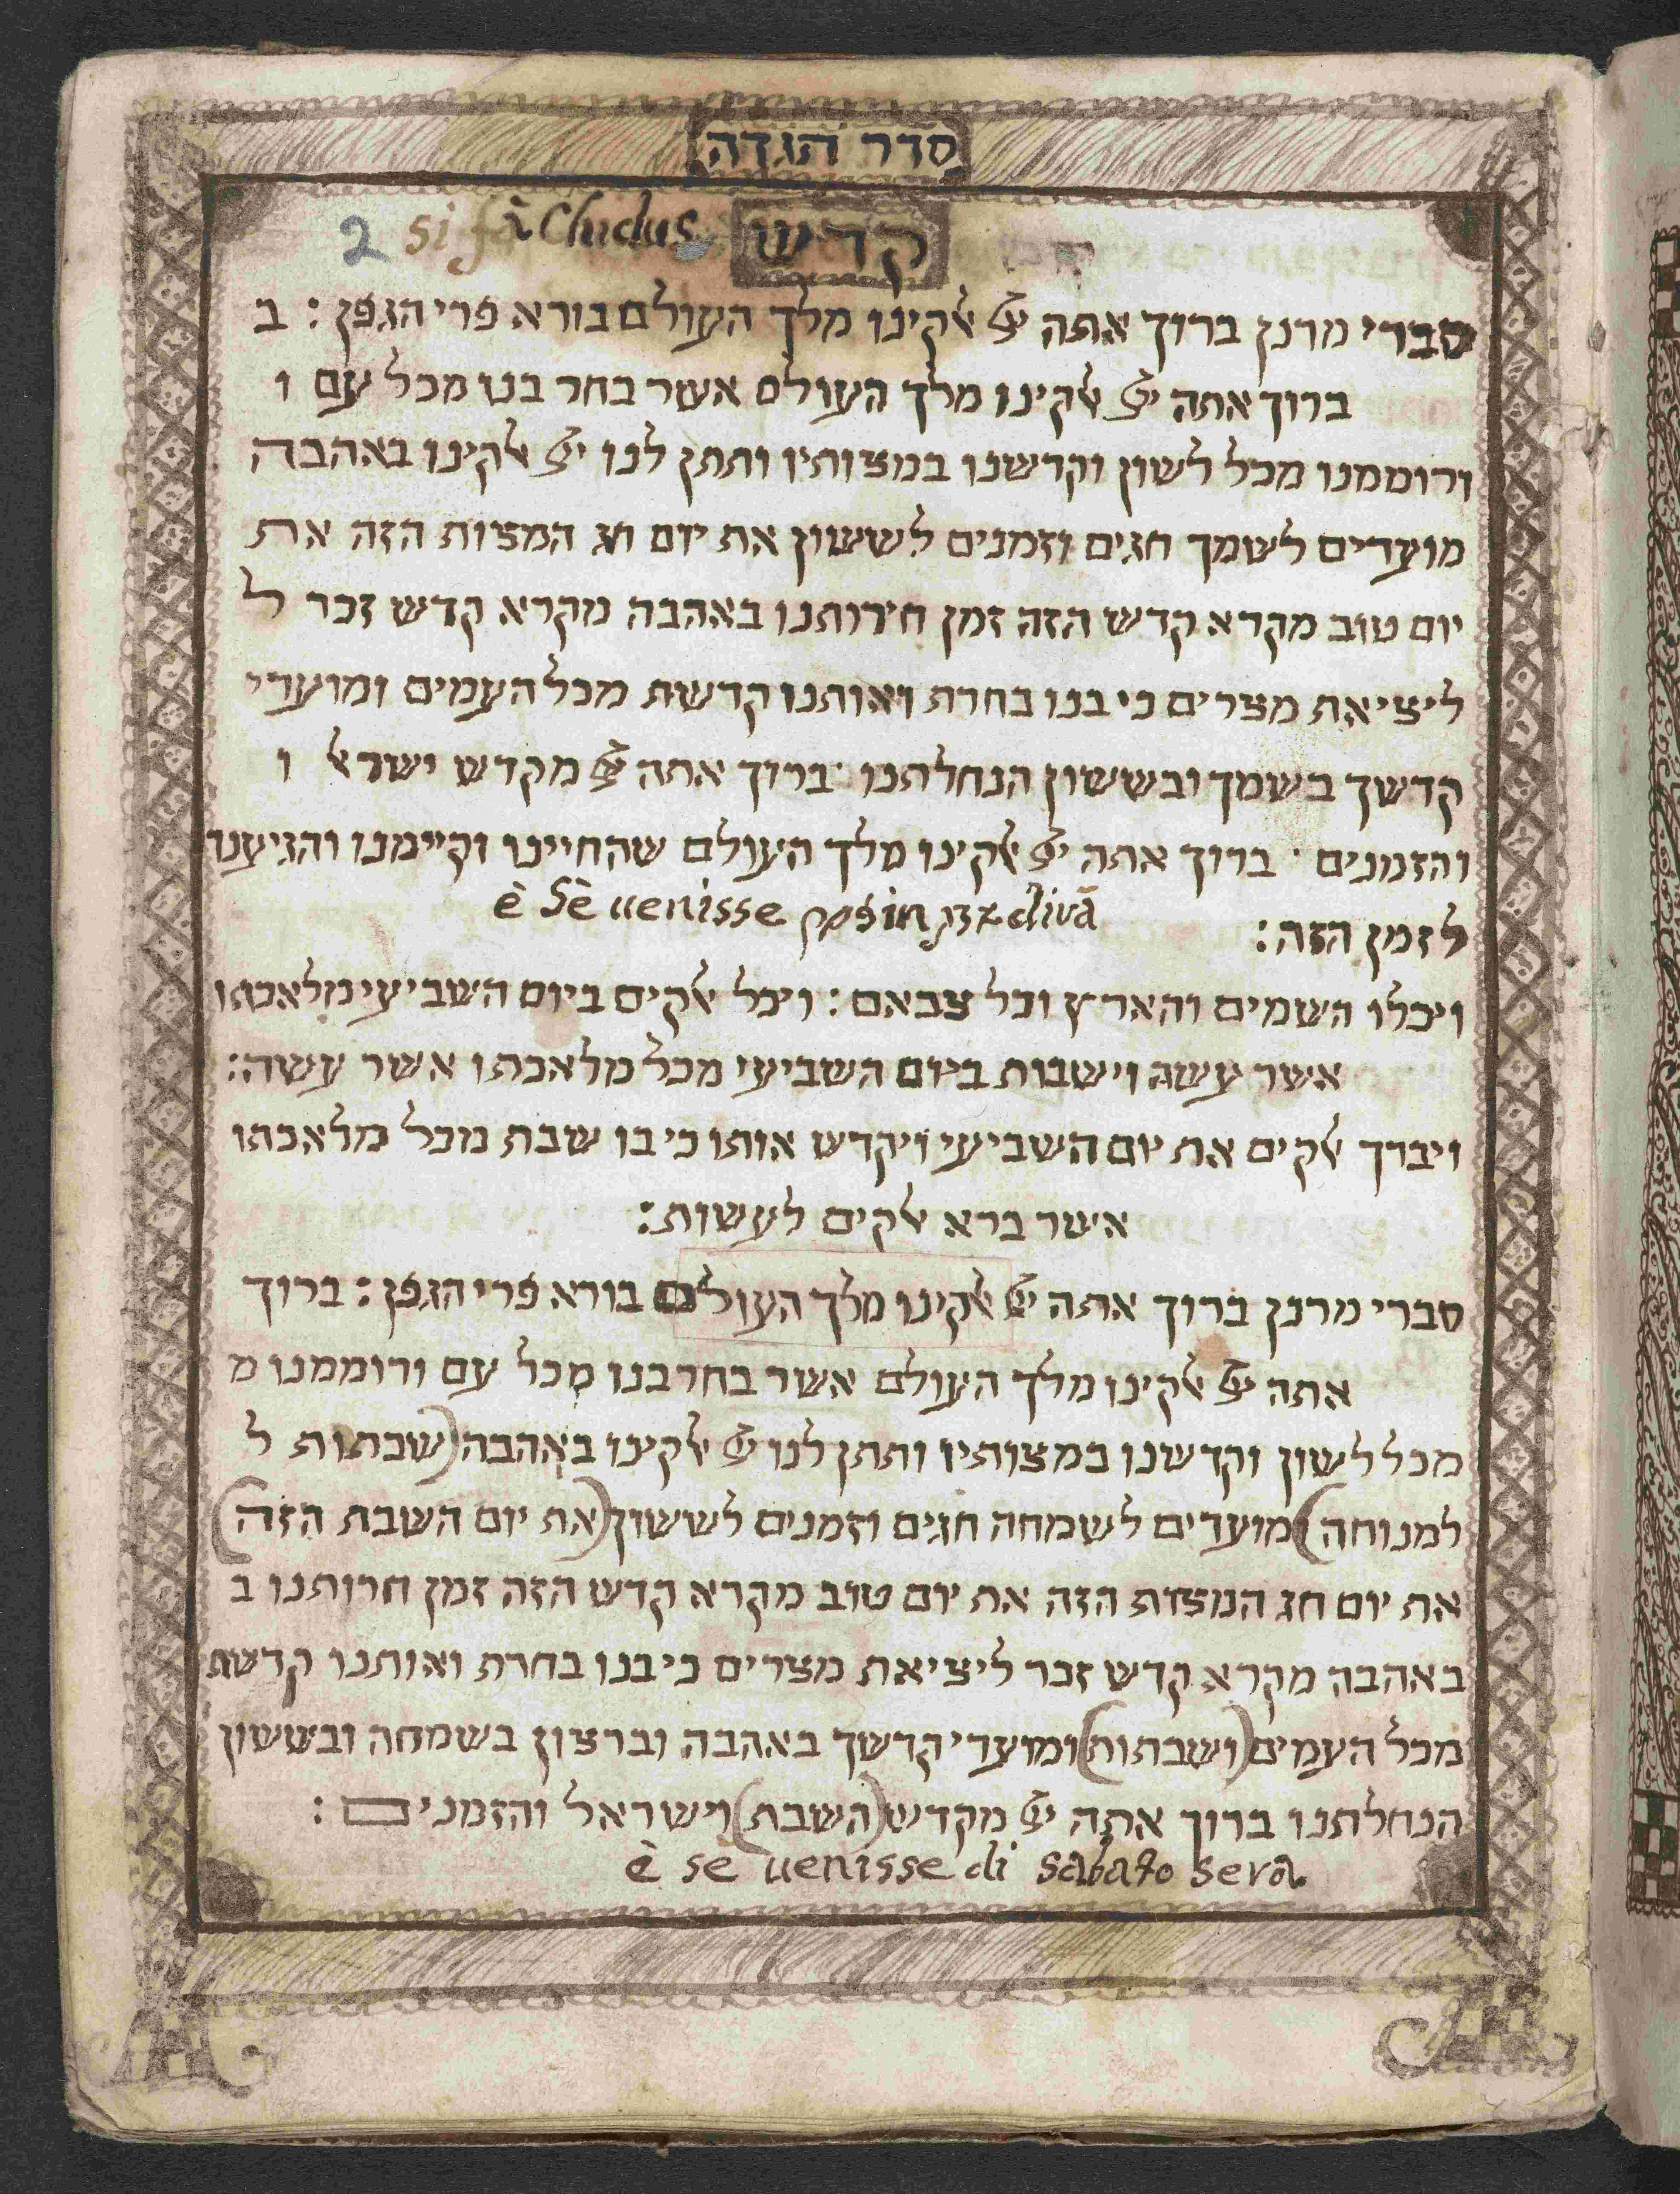 סדר הגדה
קדש
2 si fà Chidus
סברי מרנן ברוך אתה יי אלקינו מלך העולם בורא פרי הגפן : ב
ברוך אתה יי אלקינו מלך העולם אשר בחר בנו מכל עם ו
ורוממנו מכל לשון וקדשנו במצותיו ותתן לנו יי אלקינו באהבה
מועדים לשמך חגים וזמנים לששון את יום חג המצות הזה את
יום טוב מקרא קדש הזה זמן חירותנו באהבה מקרא קדש זכר ל
ליציאת מצרים כי בנו בחרת ואותנו קדשת מכל העמים ומועדי
קדשך בשמך ובששון הנחלתנו · ברוך אתה יי מקדש ישראל ו
והזמנים · ברוך אתה יי אלקינו מלך העולם שהחיינו וקיימנו והגיענו
לזמן הזה :
è Sè uenisse
ויכלו השמים והארץ וכל צבאם : ויכל אלקים ביום השביעי מלאכתו
אשר עשה וישבות ביום השביעי מכל מלאכתו אשר עשה :
ויברך אלקים את יום השביעי ויקדש אותו כי בו שבת מכל מלאכתו
אשר ברא אלקים לעשות :
סברי מרנן ברוך אתה יי אלקינו מלך העולם בורא פרי הגפן : ברוך
אתה יי אלקינו מלך העולם אשר בחר בנו מכל עם ורוממנו מ
מכל לשון וקדשנו במצותיו ותתן לנו יי אלקינו באהבה (שבתות ל
למנוחה) מועדים לשמחה חגים וזמנים לששון (את יום השבת הזה)
את יום חג המצות הזה את יום טוב מקרא קדש הזה זמן חרותנו ב
באהבה מקרא קדש זכר ליציאת מצרים כי בנו בחרת ואותנו קדשת
מכל העמים (ושבתות) ומועדי קדשך באהבה וברצון בשמחה ובששון
הנחלתנו ברוך אתה יי מקדש (השבת) וישראל והזמנים :
è se uenisse di sabato sera.